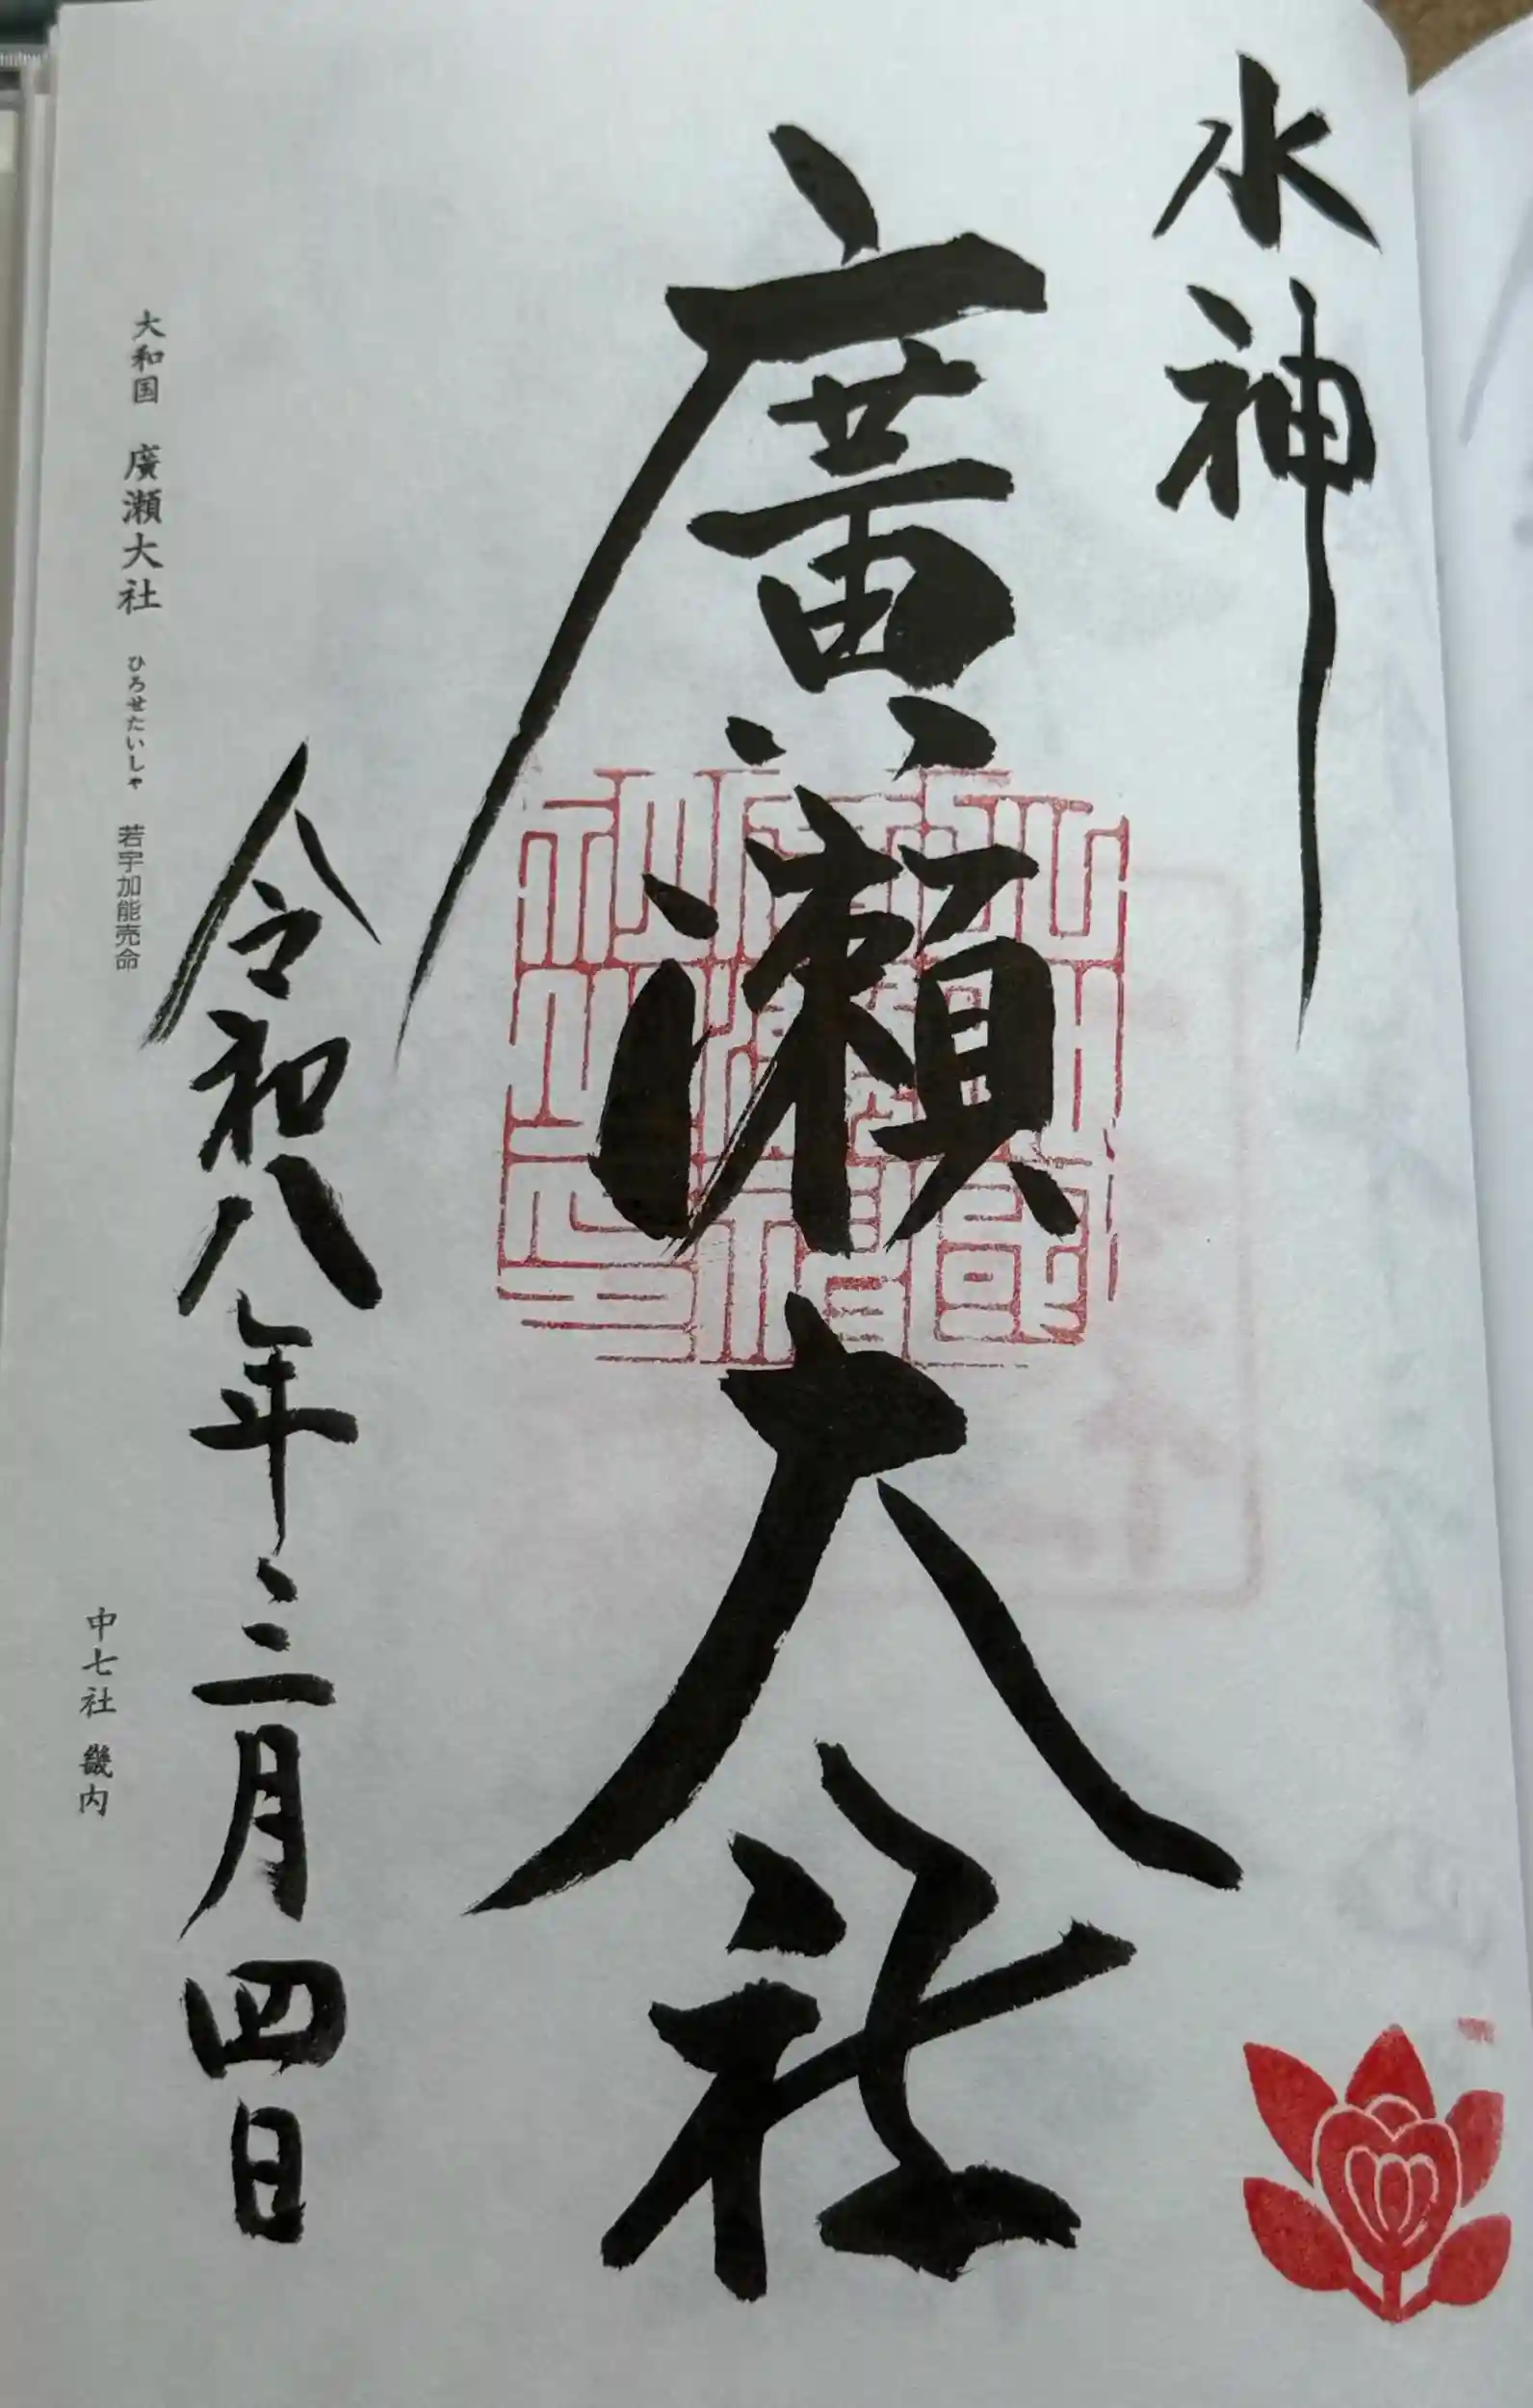 水神
廣瀬大社
令和八年三月四日
大和国 廣瀬大社 ひろせたいしゃ 若宇加能売命
中七社 畿内